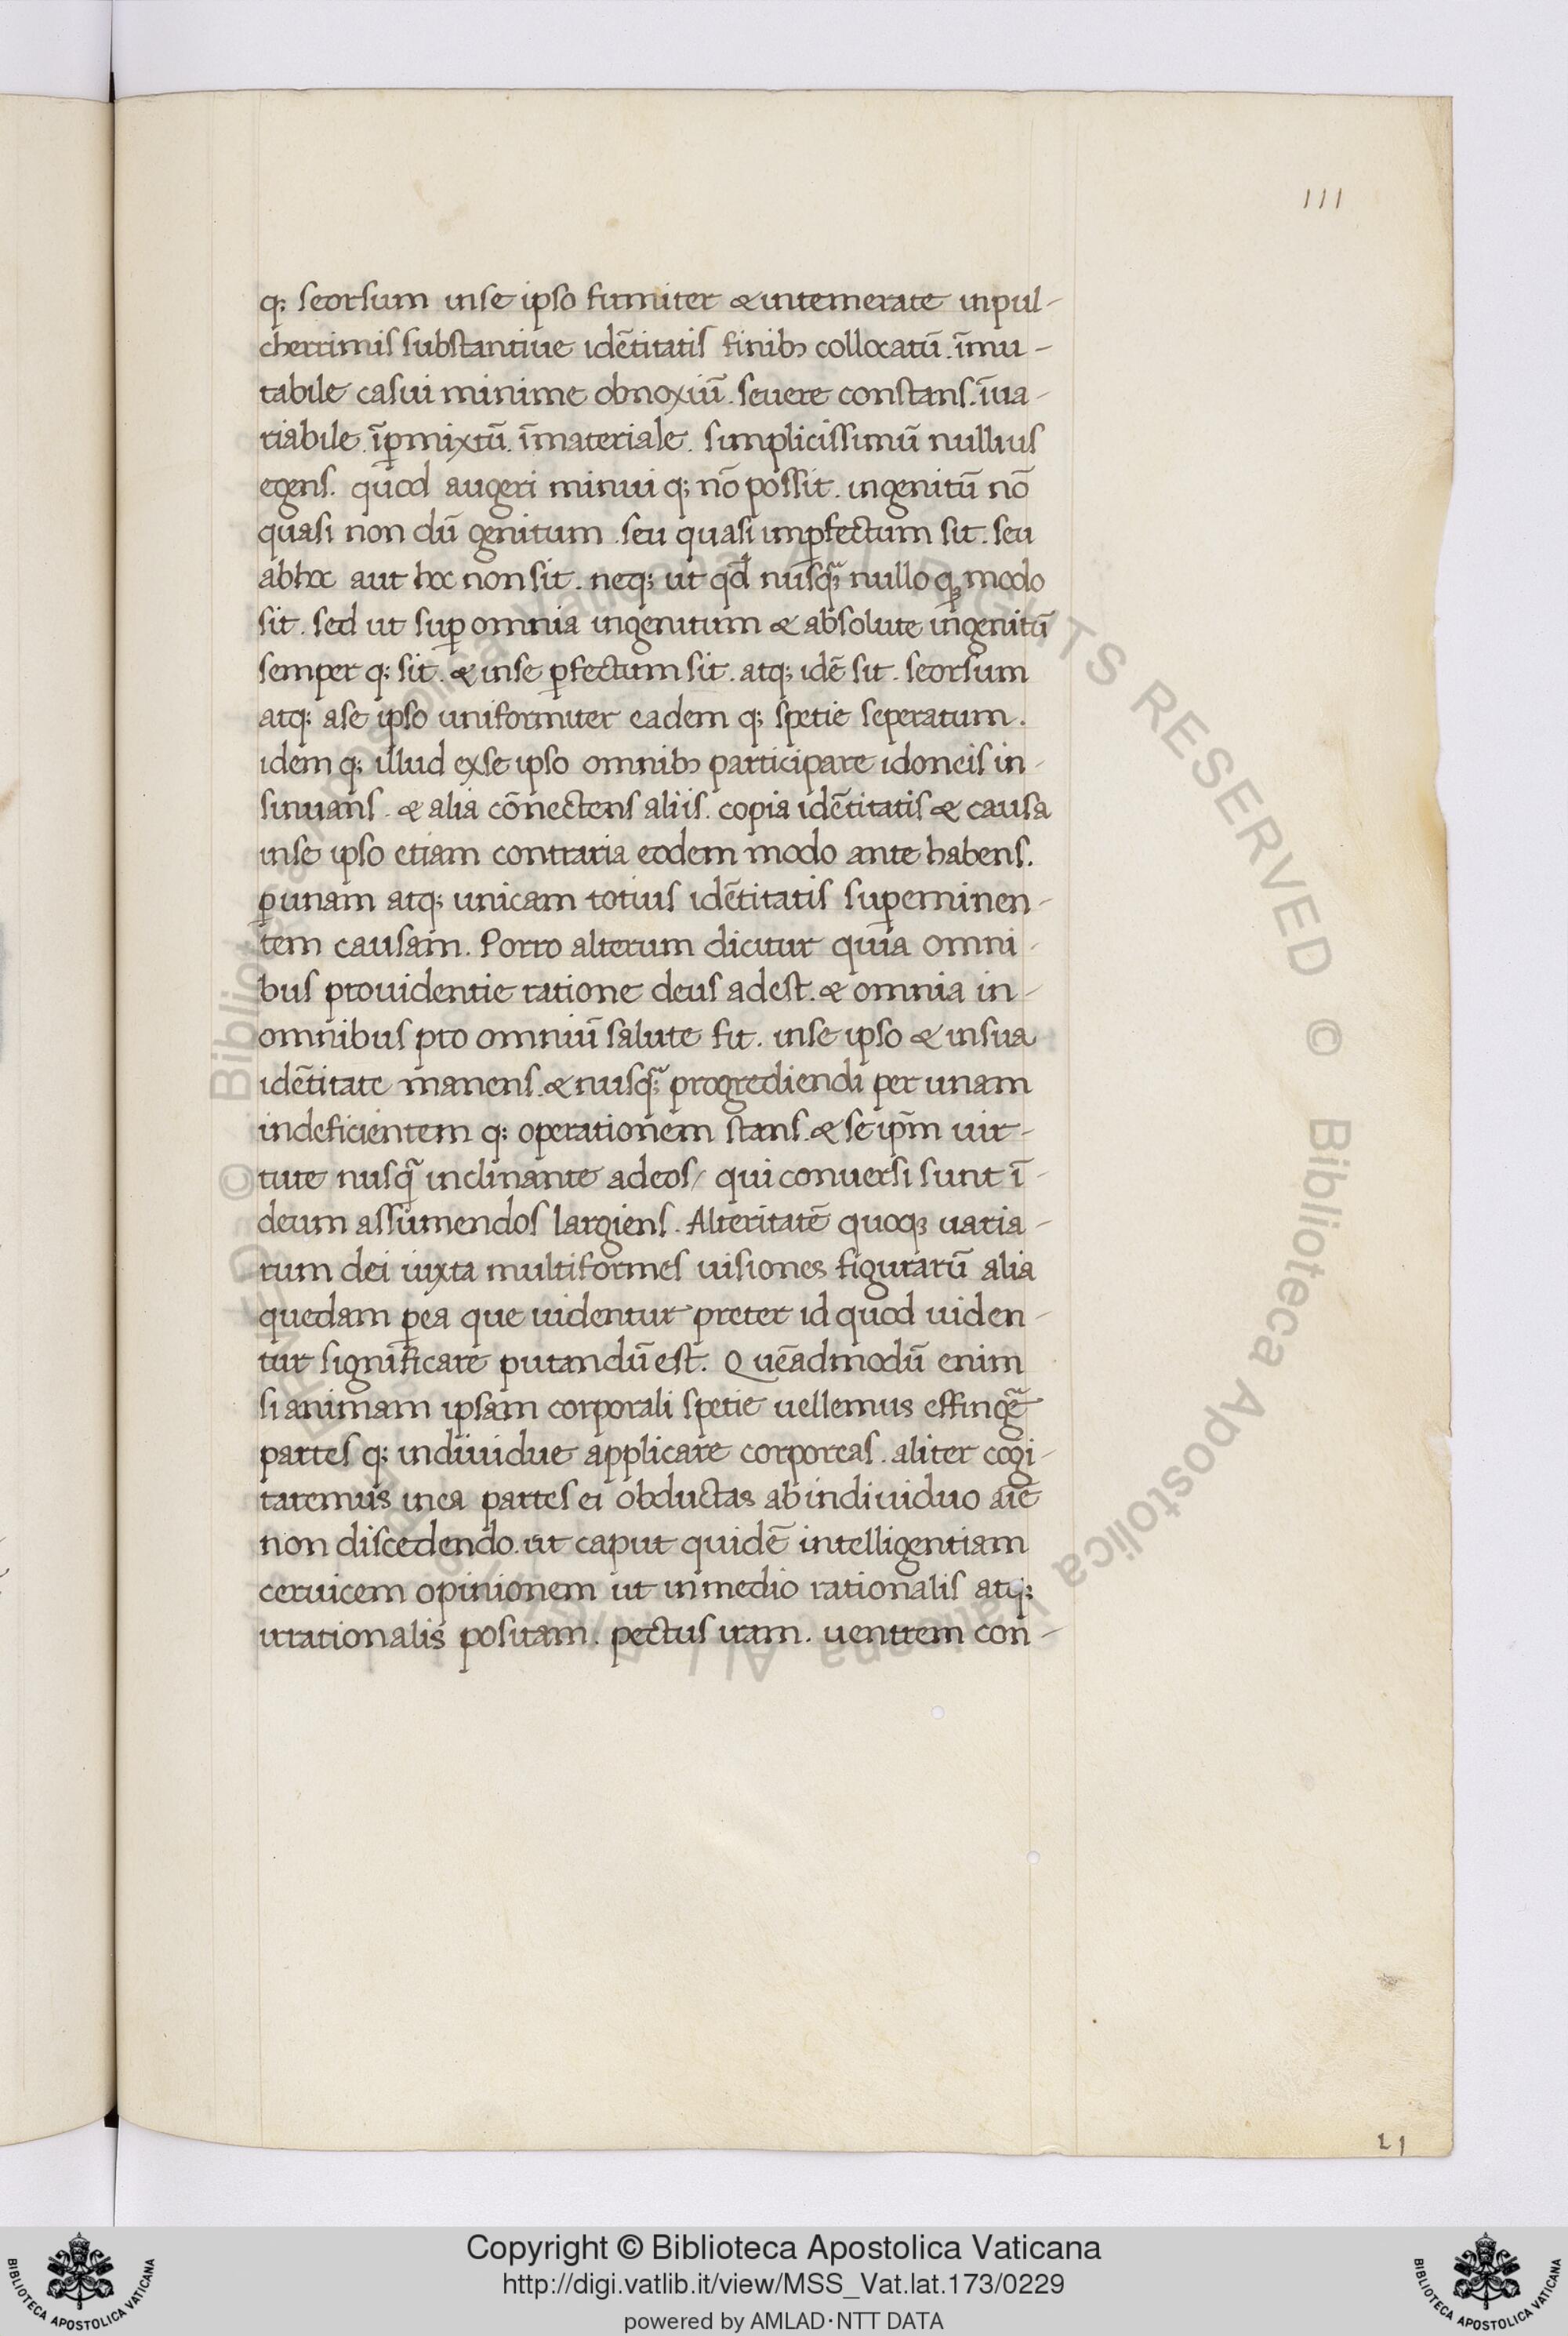 111
q; seorsum inse ipso firmiter & intemerate inpul-
cherrimis substantiue idētitatis finibꝫ collocatū. īmu-
tabile casui minime obnoxiū. seuere constans. īua-
riabile. īꝑmixtū. īmateriale. simplicissimū nullius
egens. quod augeri minui q; nō possit. ingenitū nō
quasi non dū genitum. seu quasi imꝑfectum sit. seu
abhoc aut hoc non sit. neq; ut qd̄ nusq̃; nullo q; modo
sit. sed ut suꝑ omnia ingenitum & absolute ingenitū
semper q; sit. & inse ꝑfectum sit. atq; idē sit. seorsum
atq; ase ipso uniformiter eadem q; spetie seperatum.
idem q; illud exse ipso omnibꝫ participare idoneis in-
sinuans. & alia cōnectens aliis. copia idētitatis & causa
inse ipso etiam contraria eodem modo ante habens.
ꝑunam atq; unicam totius idētitatis suꝑeminen-
tem causam. Porro alterum dicitur quia omni-
bus prouidentie ratione deus adest. & omnia in-
omnibus pro omniū salute fit. inse ipso & insua
idētitate manens. & nusq̃; progrediendi per unam
indeficientem q; operationem stans. & se ip̄m uir-
tute nusq̃ inclinante adeos/ qui conuersi sunt ī-
deum assumendos largiens. Alteritatē quoqꝫ uaria-
rum dei iuxta multiformes uisiones figurarū alia
quedam ꝑea que uidentur preter id quod uiden-
tur significare putandū est. Quēadmodū enim
si animam ipsam corporali spetie uellemus effingē
partes q; indiuidue applicare corporeas. aliter cogi-
taremus inea partes ei obductas ab indiuiduo aīe
non discedendo. ut caput quidē intelligentiam
ceruicem opinionem ut inmedio rationalis atq;
irrationalis positam. pectus iram. uentrem con-
Copyright © Biblioteca Apostolica Vaticana
http://digi.vatlib.it/view/MSS_Vat.lat.173/0229
powered by AMLAD·NTT DATA